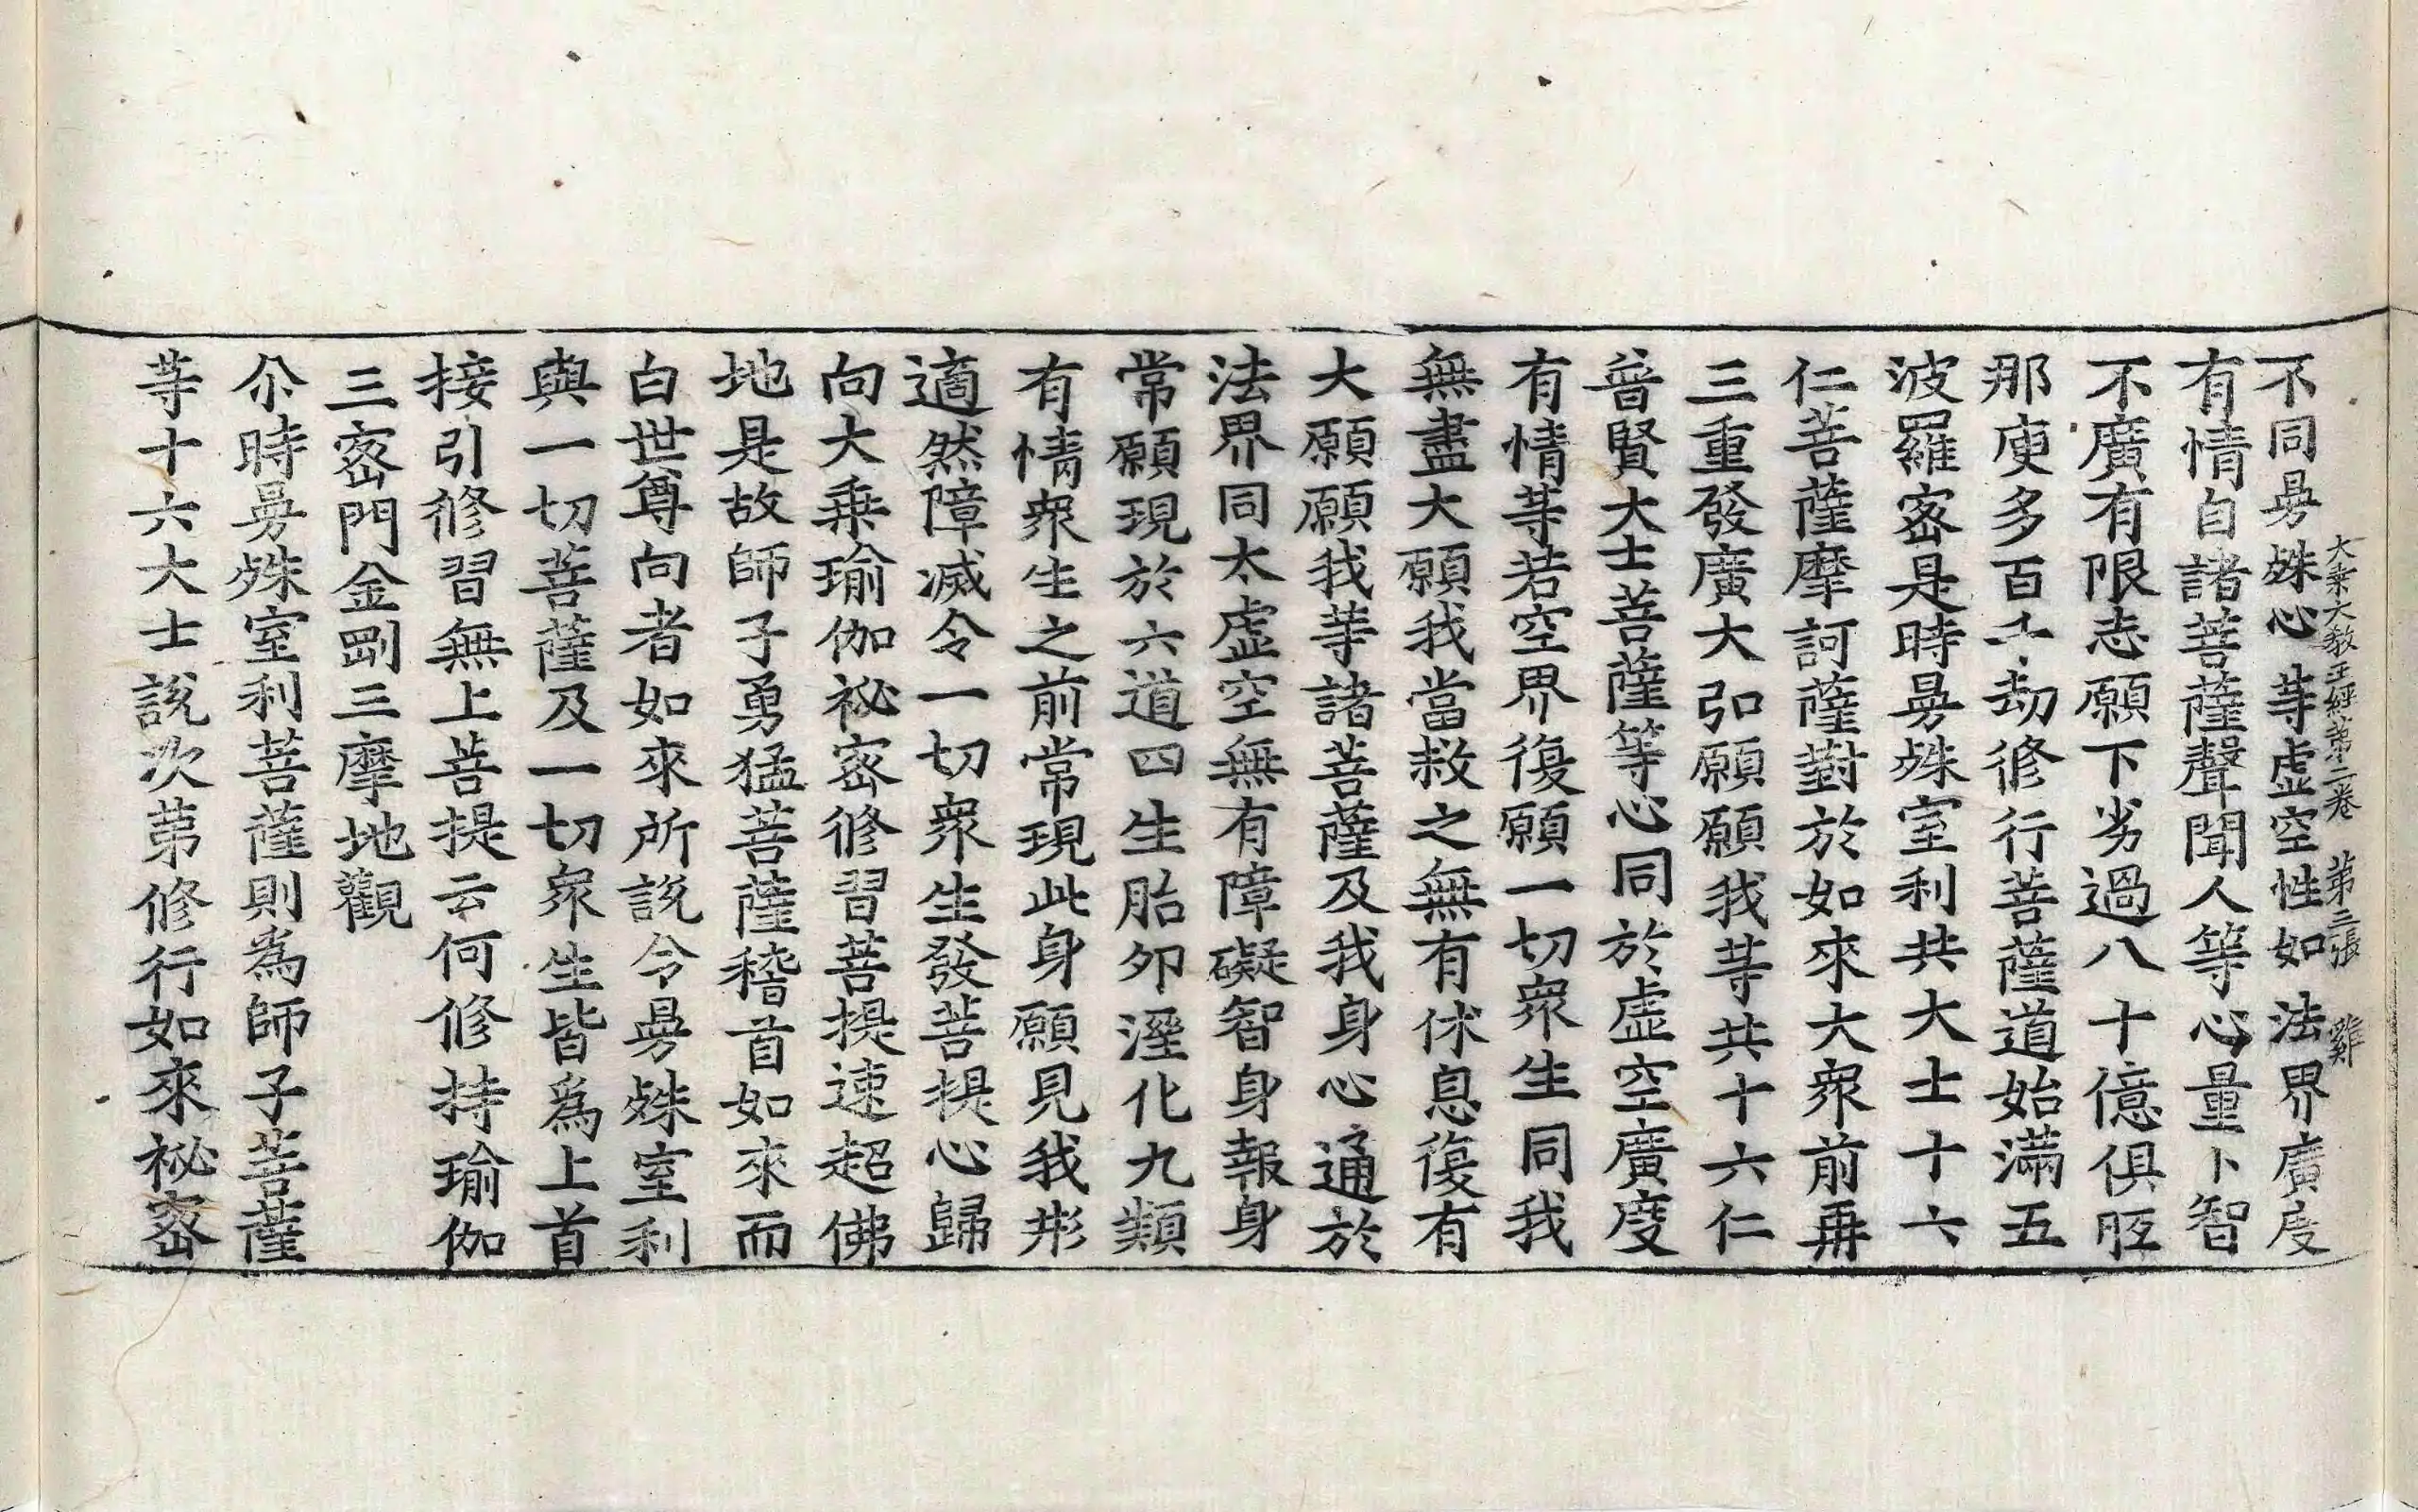 大乗大教王經第二卷 第三張 雞
不同㬅殊心等虛空性如法界廣度
有情自諸菩薩聲聞人等心量卜智
不廣有限志願下劣過八十億俱胝
那庾多百千劫修行菩薩道始滿五
波羅蜜是時㬅殊室利共大士十六
仁菩薩摩訶薩對於如來大眾前再
三重發廣大弘願願我等共十六仁
普賢大士菩薩等心同於虛空廣度
有情等若空界復願一切眾生同我
無盡大願我當救之無有休息復有
大願願我等諸菩薩及我身心通於
法界同太虛空無有障礙智身報身
常願現於六道四生胎夘溼化九類
有情眾生之前常現此身願見我形
適然障滅令一切眾生發菩提心歸
向大乗瑜伽祕密修習菩提速超佛
地是故師子勇猛菩薩稽首如來而
白世尊向者如來所說令㬅殊室利
與一切菩薩及一切眾生皆為上首
接引修習無上菩提云何修持瑜伽
三密門金剛三摩地觀
尒時㬅殊室利菩薩則為師子菩薩
等十六大士說次第修行如來祕密